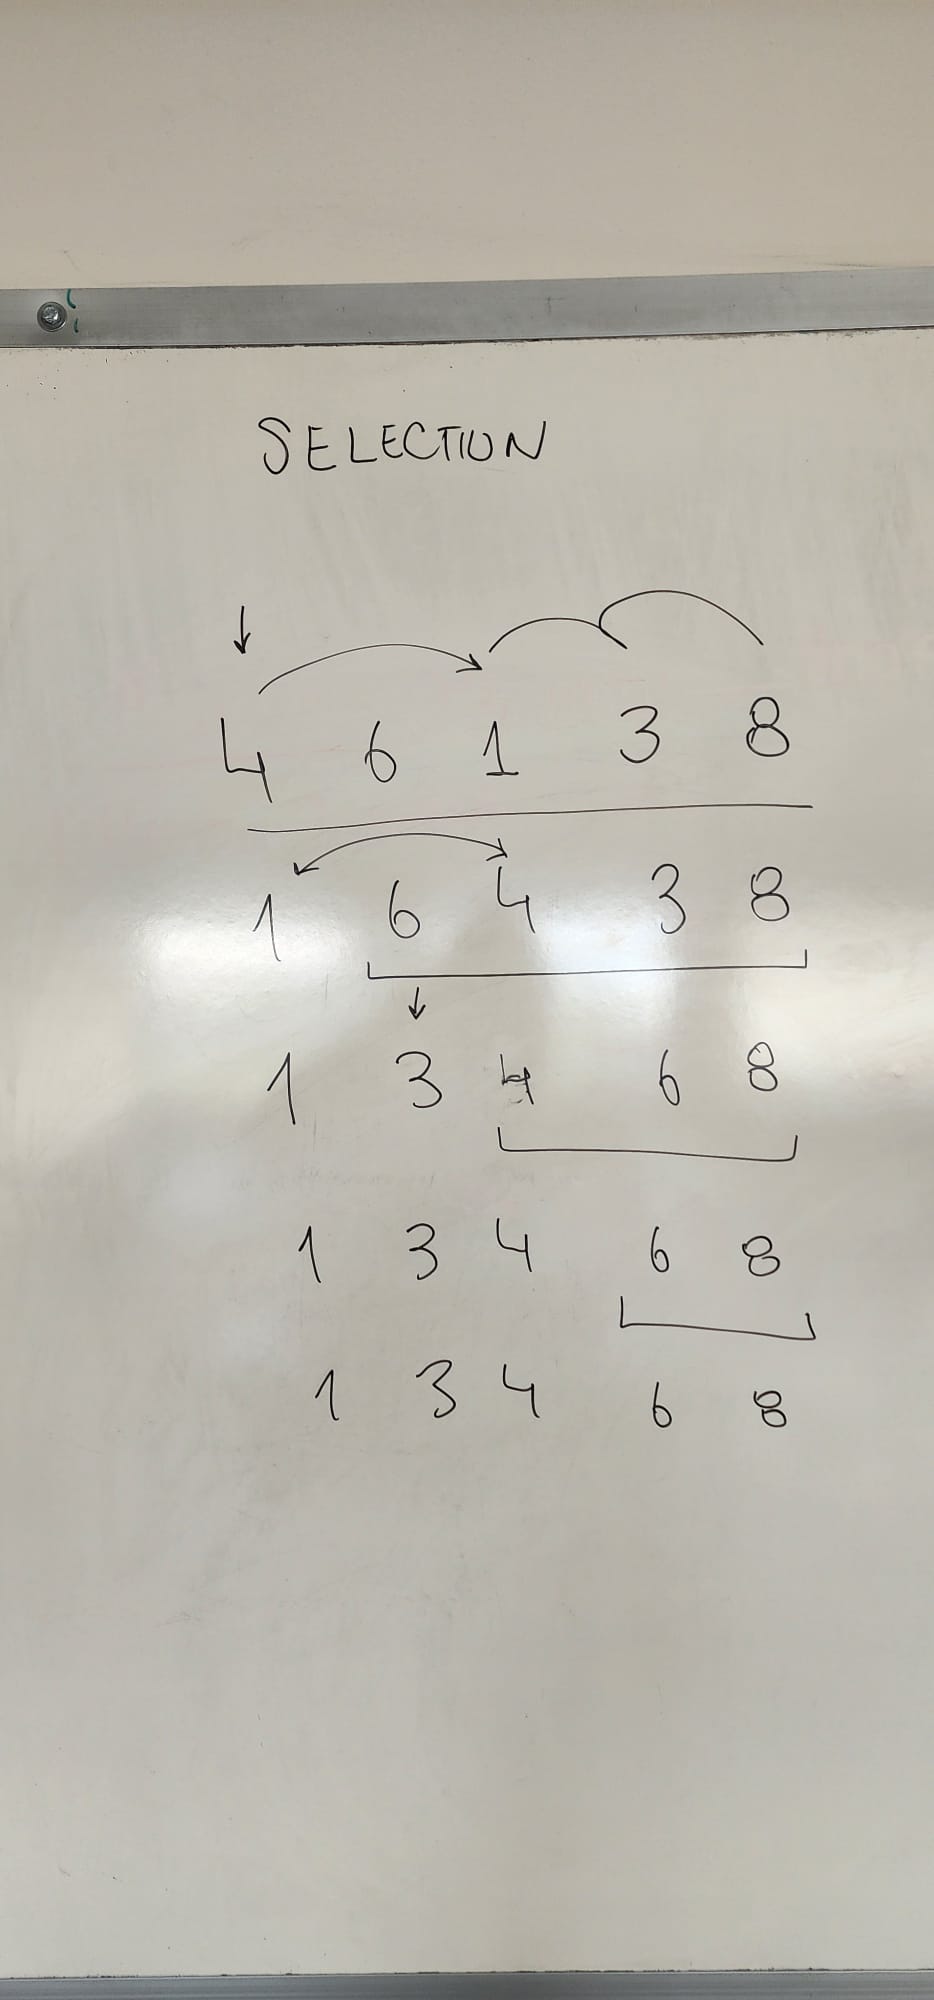 SELECTION
4 6 1 3 8
1 6 4 3 8
1 3 4 6 8
1 3 4 6 8
1 3 4 6 8